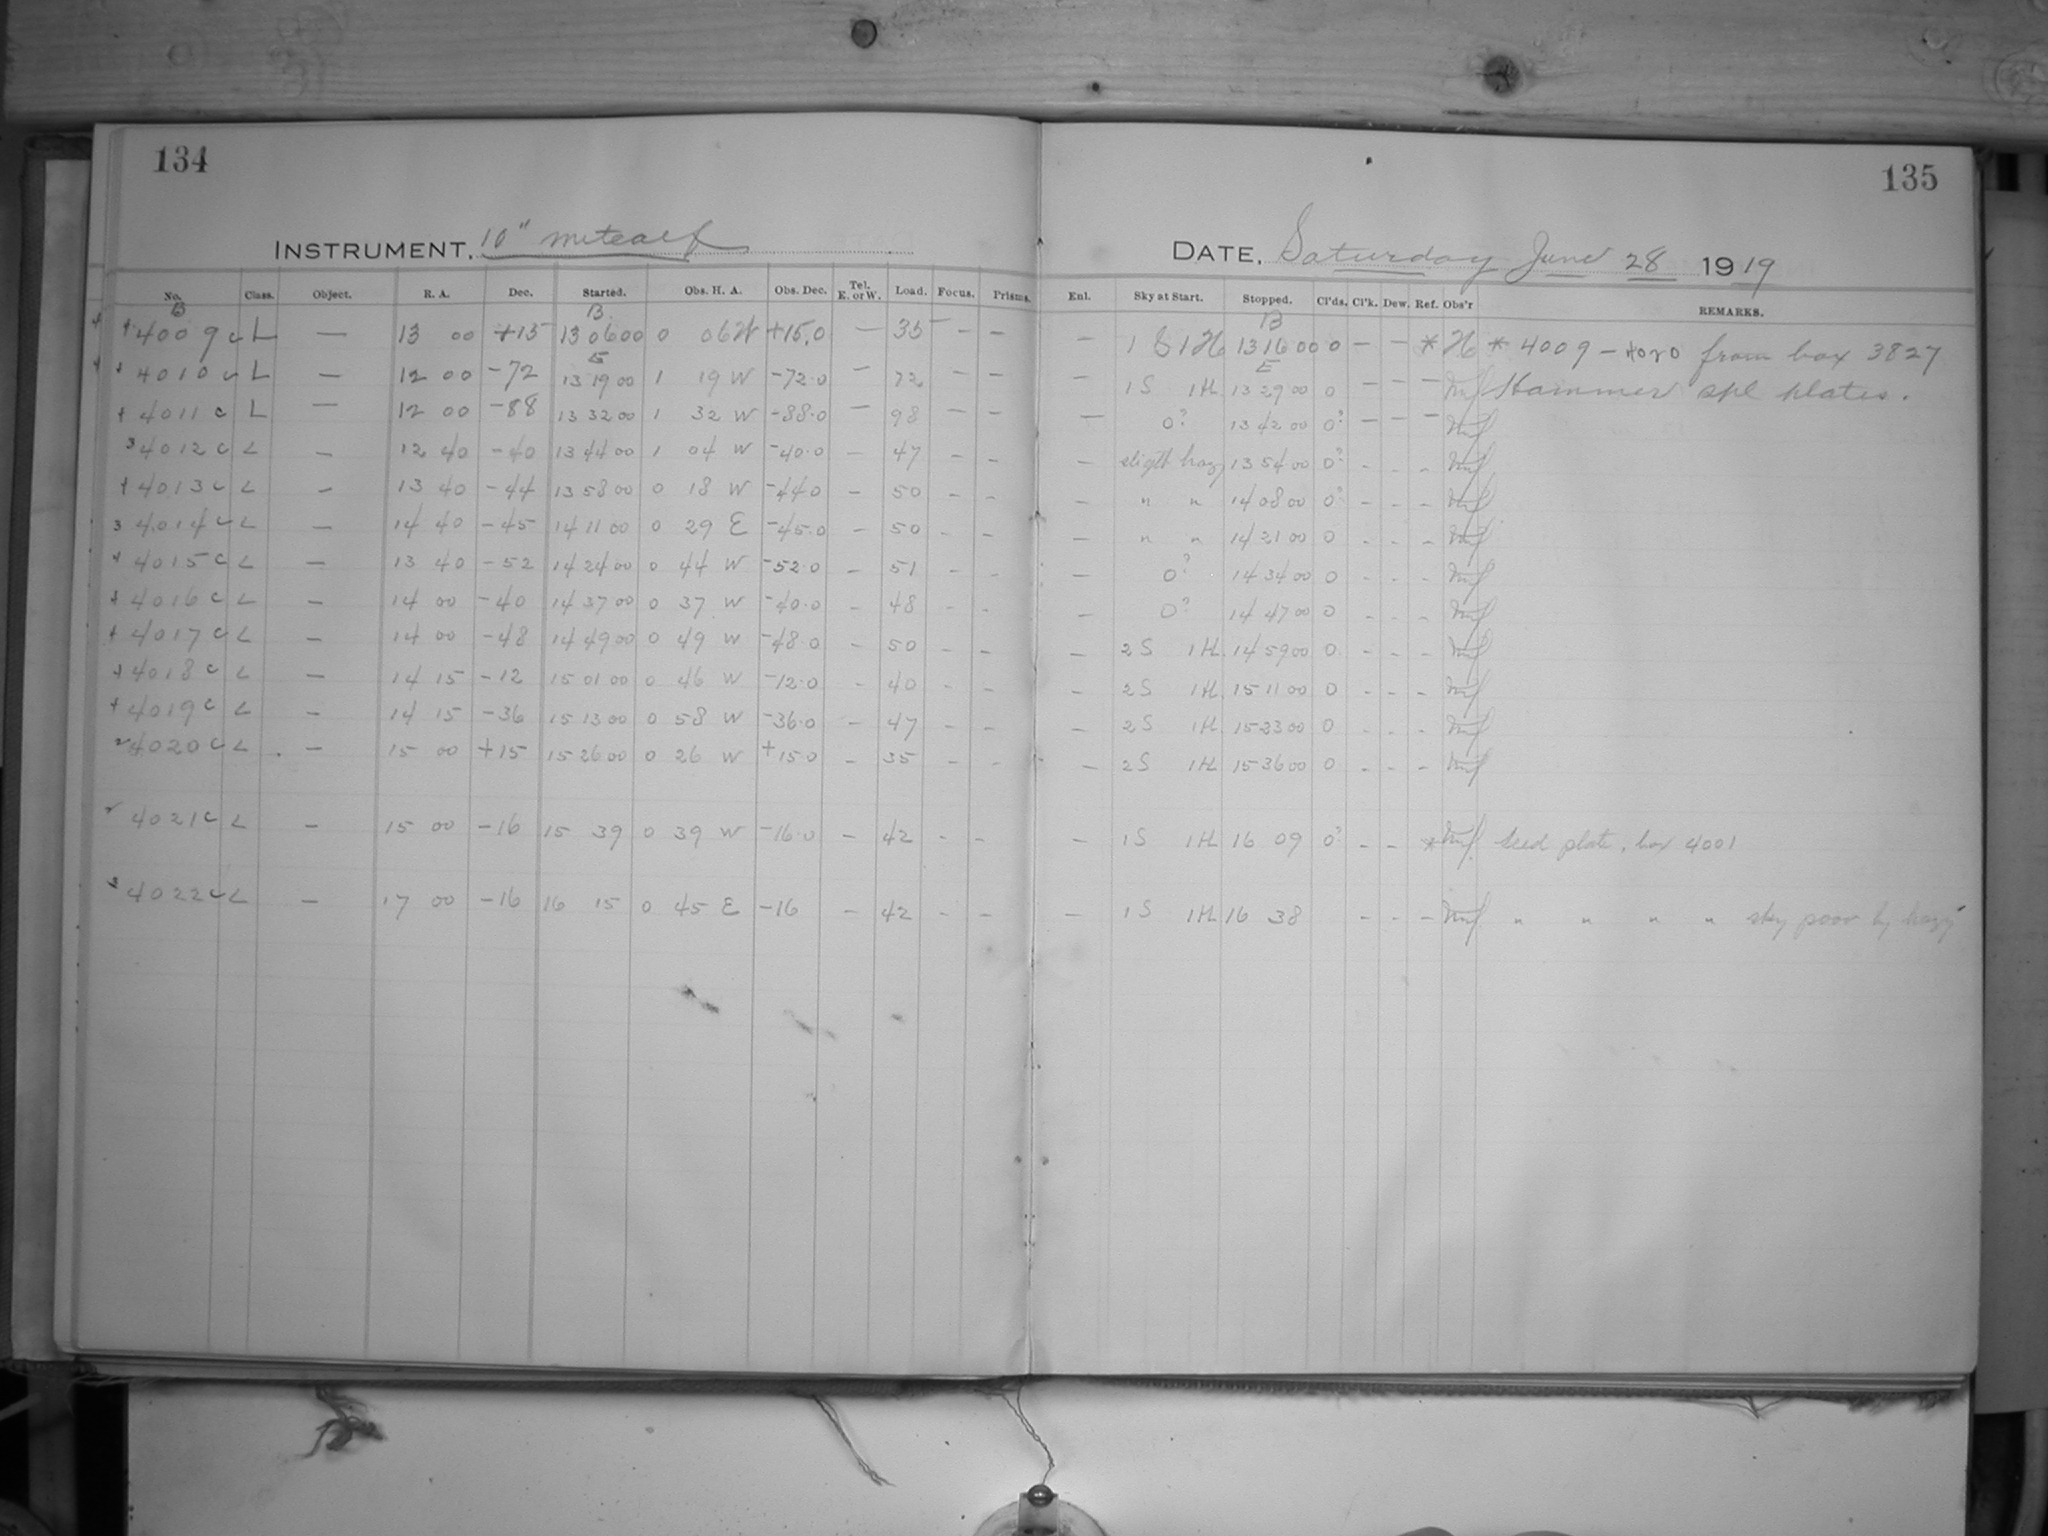 134
135
INSTRUMENT, 10" metcalf
DATE, Saturday June 28 1919
No. Class. Object. R. A. Dec. Started. Obs. H. A. Obs. Dec. Tel. E. or W. Load. Focus. Prisms. Enl. Sky at Start. Stopped. Cl'ds. Cl'k. Dew. Ref. Obs'r REMARKS.
B B B
4009 c L — 13 00 +15 13 06 00 0 06 W +15.0 — 35 - - — 1 S 1 H 13 16 00 0 — — * H * 4009 - 4020 from box 3827
E E
4010 c L — 12 00 -72 13 19 00 1 19 W -72.0 — 72 - - — 1S 1H 13 29 00 0 — — — Hammer spl plates.
4011 c L — 12 00 -88 13 32 00 1 32 W -88.0 — 98 - - — 0? 13 42 00 0? — — —
3 4012 c L - 12 40 -40 13 44 00 1 04 W -40.0 - 47 - - - slight hazy 13 54 00 0? - - -
4013 c L - 13 40 -44 13 58 00 0 18 W -44.0 - 50 - - - " " 14 08 00 0? - - -
3 4014 c L - 14 40 -45 14 11 00 0 29 E -45.0 - 50 - - - " " 14 21 00 0 - - -
4015 c L - 13 40 -52 14 24 00 0 44 W -52.0 - 51 - - - 0? 14 34 00 0 - - -
4016 c L - 14 00 -40 14 37 00 0 37 W -40.0 - 48 - - - 0? 14 47 00 0 - - -
4017 c L - 14 00 -48 14 49 00 0 49 W -48.0 - 50 - - - 2S 1H 14 59 00 0 - - -
4018 c L - 14 15 -12 15 01 00 0 46 W -12.0 - 40 - - - 2S 1H 15 11 00 0 - - -
4019 c L - 14 15 -36 15 13 00 0 58 W -36.0 - 47 - - - 2S 1H 15 23 00 0 - - -
2 4020 c L - 15 00 +15 15 26 00 0 26 W +15.0 - 35 - - - 2S 1H 15 36 00 0 - - -
4021 c L - 15 00 -16 15 39 0 39 W -16.0 - 42 - - - 1S 1H 16 09 0? - - * Seed plate, box 4001
3 4022 c L - 17 00 -16 16 15 0 45 E -16 - 42 - - - 1S 1H 16 38 - - - " " " " sky poor hazy